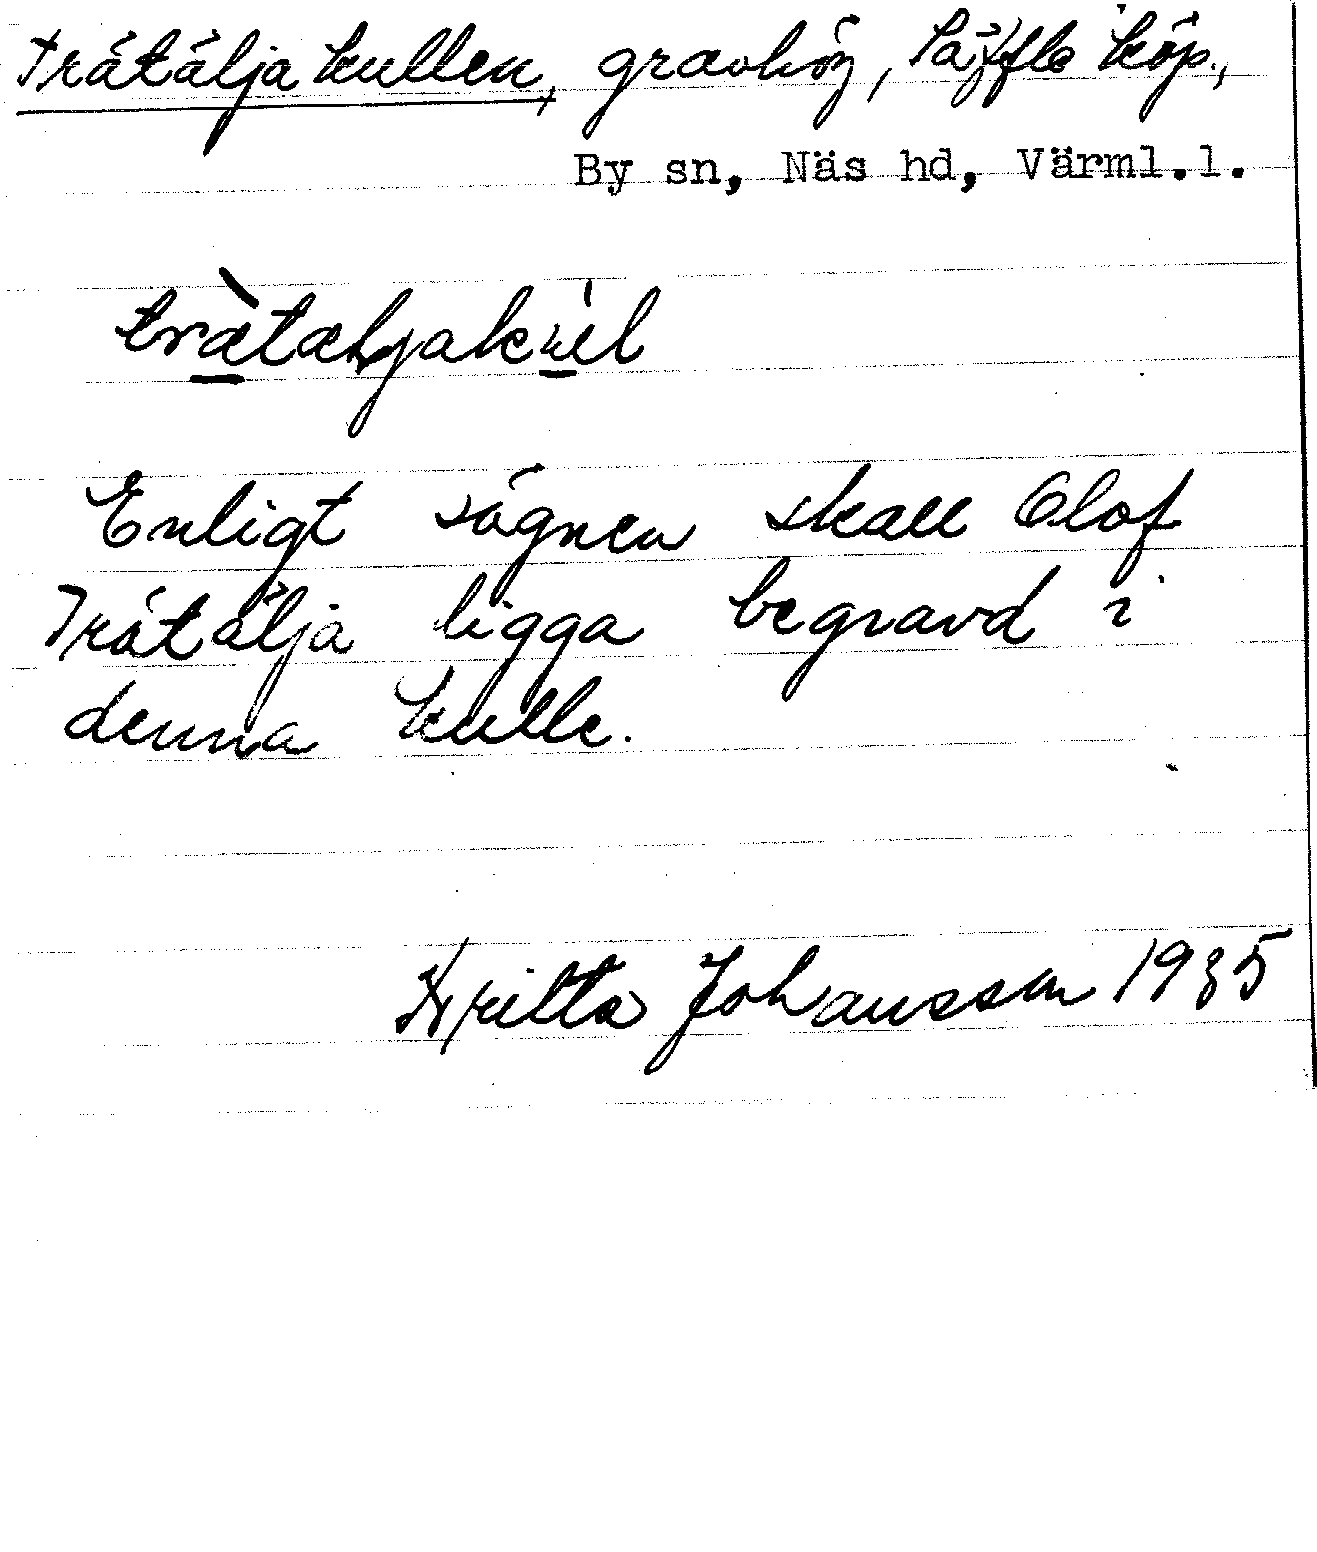 Trätälja kullen, gravhög, Säffle köp.,
By sn, Näs hd, Värml.l.
Enligt sägnen skall Olof
Trätälja ligga begravd i
denna kulle.
Britta Johansson 1935